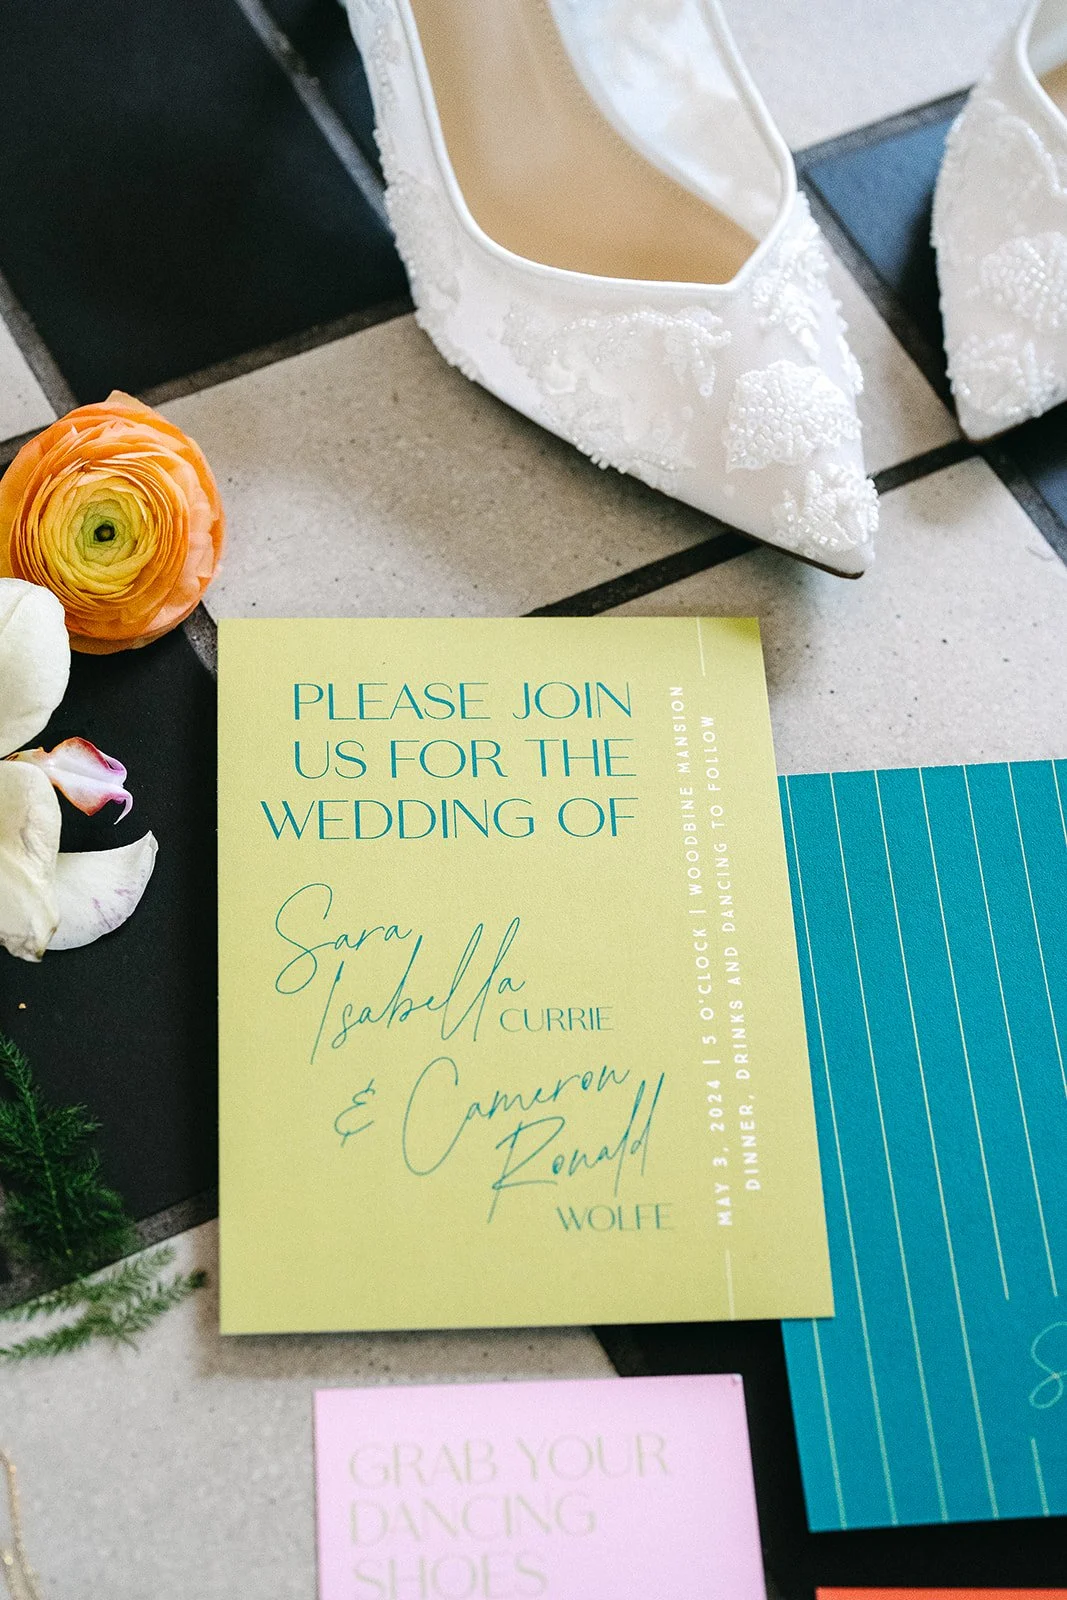 PLEASE JOIN
US FOR THE
WEDDING OF
Sara
Isabella CURRIE
& Cameron
Ronald
WOLFE
MAY 3, 2024 | 5 O'CLOCK | WOODBINE MANSION
DINNER, DRINKS AND DANCING TO FOLLOW
GRAB YOUR
DANCING
SHOES